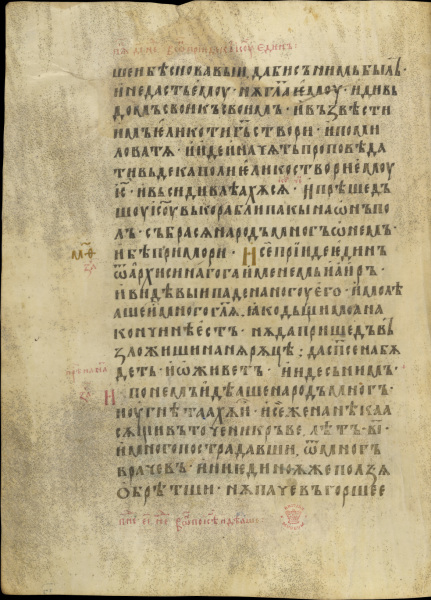 шеи бѣсновавыи, да би съ нимь былъ.
и не дастъ емоу · нѫ гл҃а емоу · иди вь
домъ свои къ своимъ · и възвѣсти
имъ елико ти г҃ь створи · и поми
лова тѧ · и иде и начѧтъ проповѣда
ти вь декаполи елико створи емоу
і҃с · и вьси дивлѣахѫсѧ · И прѣшед
шоу і҃соу вь корабли пакы на ѡнъ по
лъ · събрасѧ народъ многъ ѡ немъ ·
и бѣ при мори · И се прииде единъ
ѿ архисинагога именемь иаиръ ·
и видѣвы и паде на ногоу его · и молѣ
шеи много глѧ · ꙗко дъщи моꙗ на
кончинѣ естъ · нѫ да пришедъ вь
зложиши на нѫ рѫцѣ : да сп҃сена бѫ
детъ · и ѡживетъ · и иде сь нимъ ·
И по немъ идѣаше народъ многъ ·
и оугнѣтаахѫи · и се жена нѣкаа
сѫщи въ точени кръве · лѣтъ · в҃і
и много пострадавши · ѿ многъ
врачевъ · и ни единоѫже ползѫ
обрѣтши · нѫ паче въ горшее